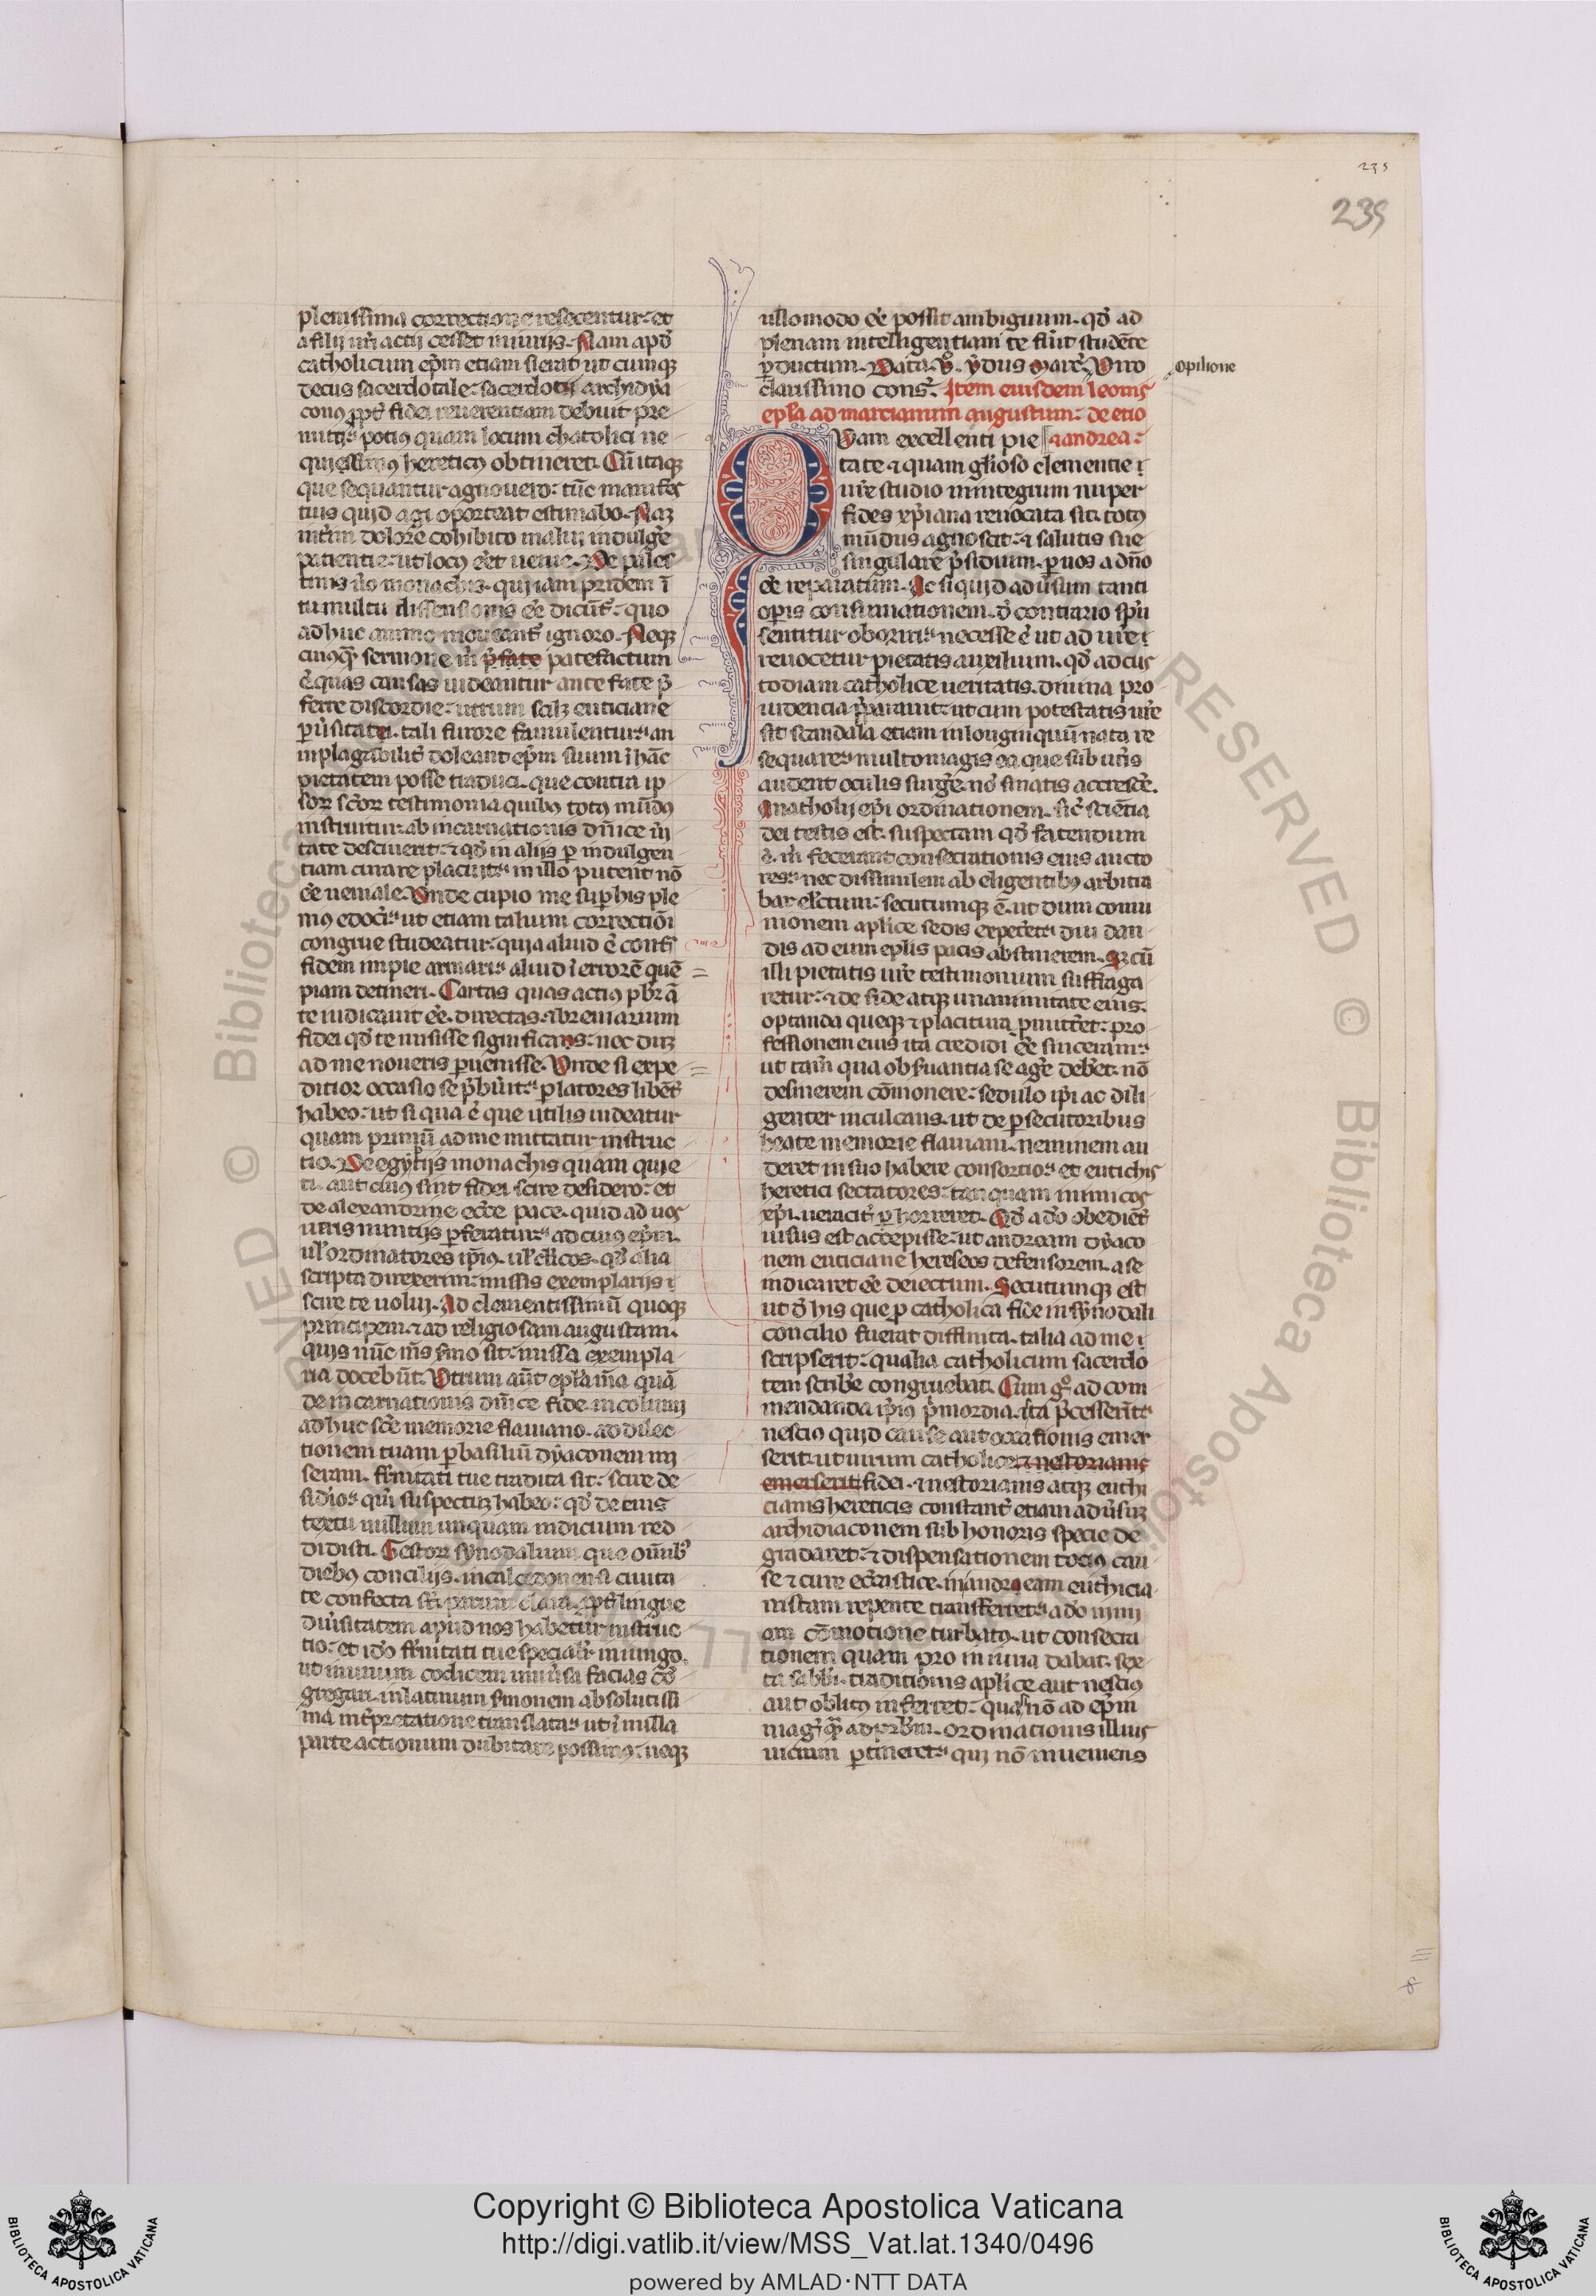 235
239
plenissima correctione resecentur. et
a filij nr̄i actij cesset iniurijs. Nam apd̓
catholicum ep̄m etiam si erat ut cumqꝫ
decus sacerdotale. sacerdotij archidya
conꝰ ꝓpt̓ fidei reuerentiam debuit pre
mitti potiꝰ quam locum chatolici ne
quissimꝰ hereticꝰ obtineret. Cū itaqꝫ
que sequantur agnouero. tūc manifes
tius quid agi oporteat estimabo. Naꝫ
int̓im dolore cohibito malui indulg̓e
patientie. ut locꝰ e̓et uenie. De pales
tinis u̓o monachis. qui iam pridem ī
tumultu dissensionis e̓e dicūt̓. quo
adhuc animo moueant̓ ignoro. Neqꝫ
cuiusq̄ sermone m̄ p̄fate patefactum
ē quas causas uideantur ante fate p̄
ferre discordie. utrum scilꝫ euticiane
ꝑu̓sitatei. tali furore famulentur. an
inplagabilit̓ doleant ep̄m suum ī hāc
pietatem posse traduci. que contra ip
soꝝ sc̄oꝝ testimonia quibꝰ totꝰ mūdꝰ
instruitur ab incarnationis dn̄ice u̓i
tate desciuerit. ⁊ qd̓ in alijs ꝑ indulgen
tiam curare placuit. in illo putent nō
e̓e ueniale. Unde cupio me suꝑ his ple
niꝰ edoceri ut etiam talium correctiōi
congrue studeatur. quia aliud ē cont̓
fidem impie armari. aliud ī errorē quē
piam detineri. Cartas quas actius pb̄r ā
te iudicauit e̓e. directas. ⁊ breuiarium
fidei qd̓ te misisse significans. nec duꝫ
ad me noueris ꝑuenisse. Unde si expe
ditior occasio se p̄buerit. ꝑlatores libēt̓
habeo. ut si qua ē que utilis uideatur
quam primū ad me mittatur instruc
tio. De egyptijs monachis quam quie
ti. aut cuiꝰ sint fidei scire desidero. et
de alexandrine ecc̄e pace. quid ad uos
ueris nuntijs ꝑferatur. ad cuiꝰ ep̄m.
ul̓ ordinatores ip̄iꝰ. ul̓ cl̓icos. qd̓ alia
scripta direxerim. missis exemplarijs ⁊
scire te uolui. Ad clementissimū quoqꝫ
principem. ⁊ ad religiosam augustam.
quis nūc m̄s s̓mo sit. missa exempla
ria docebūt. Utrum aūt epl̄a m̄a quā
de incarnationis dn̄ice fide. incolumi
adhuc sc̄e memorie flauiano. ad dilec
tionem tuam ꝑ basiliū dyaconem mi
seram. fr̄nitati tue tradita sit. scire de
sid̓o. qm̄ suspectuꝫ habeo. qd̓ de eius
textu nullum unquam indicium red
didisti. Gestoꝝ synodalium que om̄ibꝰ
diebꝰ concilijs. in calcedonensi ciuita
te confecta st̄. parum clara. ꝓpt̓ lingue
diu̓sitatem apud nos habetur instruc
tio. et id̓o fr̄nitati tue specialit̓ iniungo.
ut in unum codicem uniu̓sa facias cō
gregari. in latinum s̓monem absolutissi
ma int̓pretatione translata. ut ī nulla
parte actionum dubitare possimꝰ. neqꝫ
ullo modo e̓e possit ambiguum. qd̓ ad
plenam intelligentiam te fu̓it studēte
ꝑductum. Data. v̊. ydus Marc̓. Viro
opilione
clarissimo cons̓. Item eiusdem leonis
epl̄a ad marcianum augustum. de etio
⁊ andrea.
Quam excellenti pie
tate ⁊ quam gl̓ioso clementie ⁊
ur̄e studio in integrum nuper
fides xp̄iana reuocata sit. totꝰ
mūdus agnoscit. ⁊ salutis sue
singularē p̄sidium. ꝑ uos a dn̄o
e̓e reparatum. Ac si quid adu̓sum tanti
oꝑis consumationem. d̓ contrario sp̄u
sentitur oboriri. necesse ē ut ad ur̄e ⁊
reuocetur pietatis auxilium. qd̓ ad cus
todiam catholice ueritatis. diuina pro
uidencia p̄parauit. ut cum potestatis ur̄e
sit scandala etiam in longinquū nata re
sequare. multomagis ea que sub ur̄is
audent oculis surg̓e. nō sinatis accresc̓e.
Anatholij ep̄i ordinationem. sic̓ sciētia
dei testis est. suspectam qd̓ fatendum
ē. m̄ fecerant consecrationis eius aucto
res. nec dissimilem ab eligentibꝰ arbitra
bar electum. secutumqꝫ ē. ut dum comu
nionem aplice sedis expeteret. diu dan
dis ad eum eplis pacis abstinerem. Sꝫ cū
illi pietatis ur̄e testimonium suffraga
retur. ⁊ de fide atqꝫ unanimitate eius.
optanda queqꝫ ⁊ placitura ꝓmitt̓et. pro
fessionem eius ita credidi e̓e sinceram.
ut tam̄ qua obs̓uantia se ag̓e deb̓et. nō
desinerem cōmonere. sedulo ip̄i ac dili
genter inculcans. ut de ꝑsecutoribus
beate memorie flauiani. neminem au
deret in suo habere consortio. et eutichis
heretici sectatores. tanquam inimicos
xp̄i. ueracit̓ ꝑhorreret. Qd̓ ad̓o obediēt̓
uisus est accepisse. ut andream dyaco
nem euticiane hereseos defensorem. a se
indicaret e̓e deiectum. Secutumqꝫ est
ut d̓ his que ꝓ catholica fide in synodali
concilio fuerat diffinita. talia ad me ⁊
scripserit. qualia catholicum sacerdo
tem scrib̓e congruebat. Cum g̊ ad com
mendanda ip̄iꝰ p̄mordia. ita p̄cesserīt.
nescio quid cause aut occasionis emer
serit. ut uirum catholice ⁊ nestorianis
emerserit fidei. ⁊ nestorianis atqꝫ euthi
cianis hereticis constant̓ etiam adu̓suꝫ
archidiaconem sub honoris specie de
gradaret. ⁊ dispensationem tociꝰ cau
se ⁊ cure ecc̄astice. in andream euthicia
nistam repente transferret. ad̓o nimi
am cōmotione turbatꝰ. ut consecra
tionem quam pro iniuria dabat. sex
ta sabbi. traditionis aplice aut nesciꝰ
aut oblitꝰ inferret. quasi nō ad ep̄m
mag̓ q̄ ad pr̄bm. ordinationis illius
uicium ꝑtineret. qui nō inueniens
Copyright © Biblioteca Apostolica Vaticana
http://digi.vatlib.it/view/MSS_Vat.lat.1340/0496
powered by AMLAD·NTT DATA